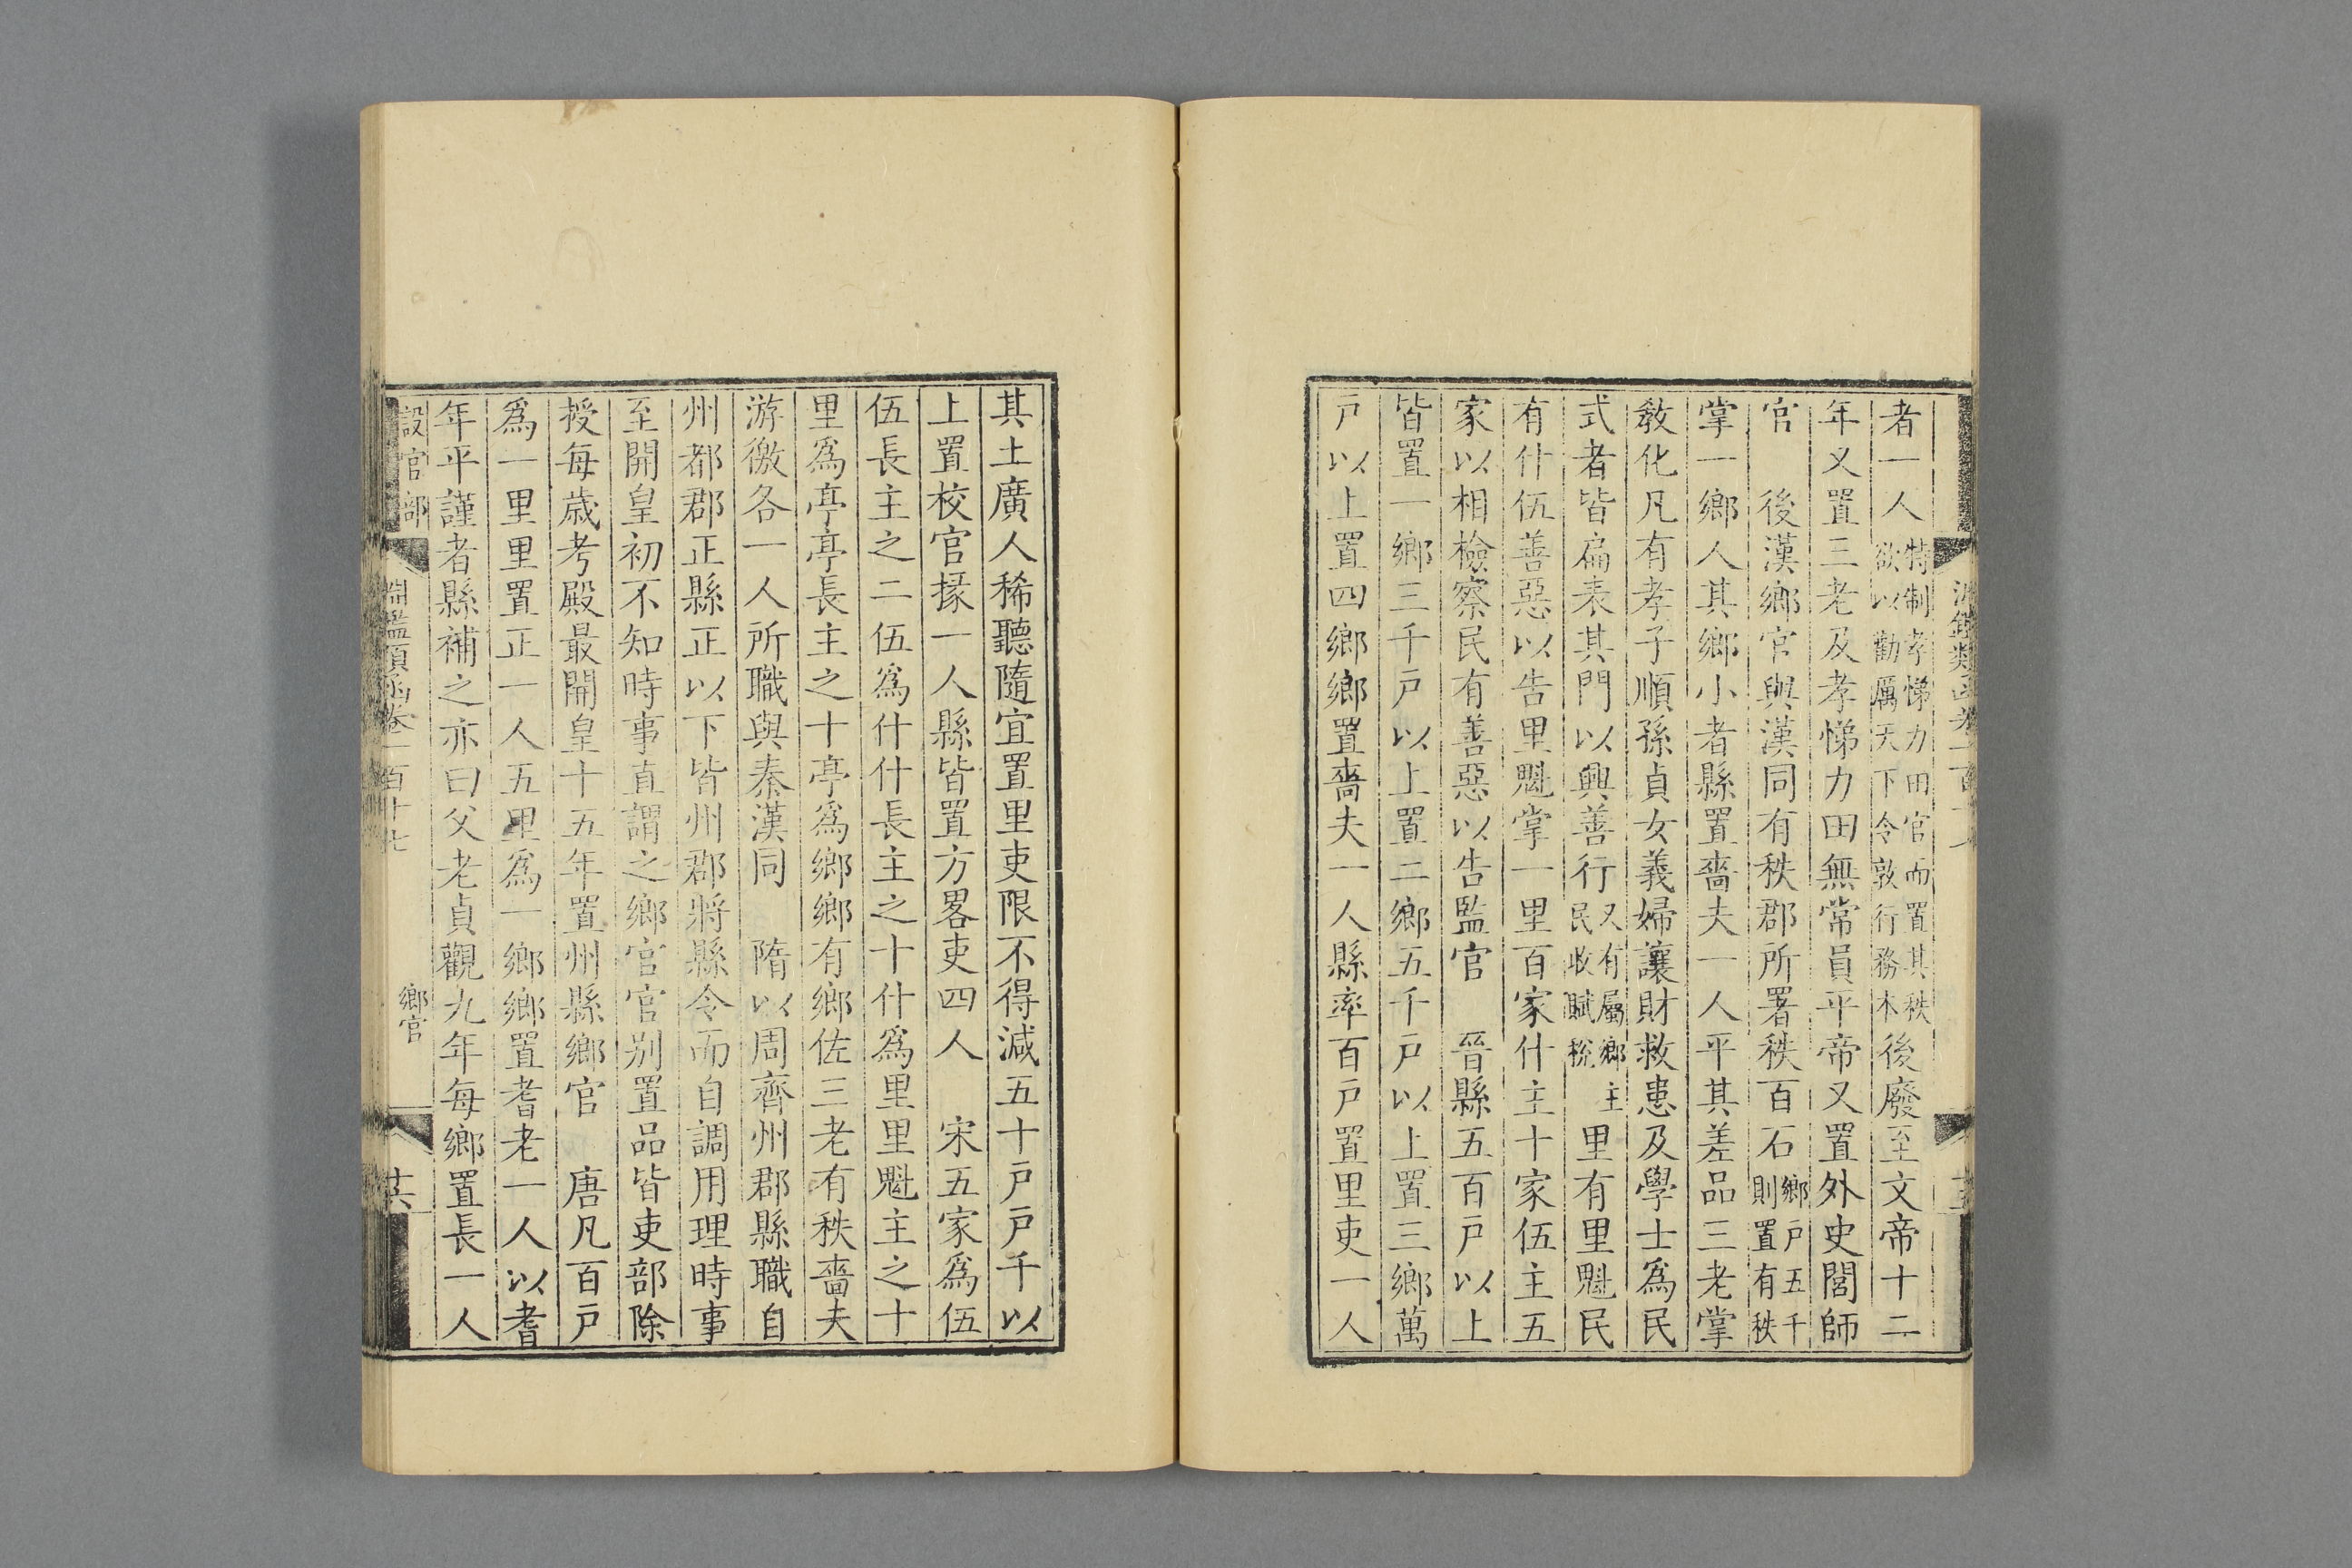 者一人特制孝悌力田官而置其秩欲以勸厲天下令敦行務本後廢至文帝十二
年又置三老及孝悌力田無常員平帝又置外史閭師
官　後漢鄉官與漢同有秩郡所署秩百石鄉戶五千則置有秩
掌一鄉人其鄉小者縣置嗇夫一人平其差品三老掌
教化凡有孝子順孫貞女義婦讓財救患及學士爲民
式者皆扁表其門以興善行又有屬鄉主民收賦稅里有里魁民
有什伍善惡以告里魁掌一里百家什主十家伍主五
家以相檢察民有善惡以告監官　晉縣五百戶以上
皆置一鄉三千戶以上置二鄉五千戶以上置三鄉萬
戶以上置四鄉鄉置嗇夫一人縣率百戶置里吏一人
其土廣人稀聽隨宜置里吏限不得減五十戶戶千以
上置校官掾一人縣皆置方畧吏四人　宋五家爲伍
伍長主之二伍爲什什長主之十什爲里里魁主之十
里爲亭亭長主之十亭爲鄉鄉有鄉佐三老有秩嗇夫
游徼各一人所職與秦漢同　隋以周齊州郡縣職自
州都郡正縣正以下皆州郡將縣令而自調用理時事
至開皇初不知時事直謂之鄉官官别置品皆吏部除
授每歲考殿最開皇十五年置州縣鄉官　唐凡百戶
爲一里里置正一人五里爲一鄉鄉置耆老一人以耆
年平謹者縣補之亦曰父老貞觀九年每鄉置長一人
設官部　淵鑑類函卷一百十七　鄉官　十六